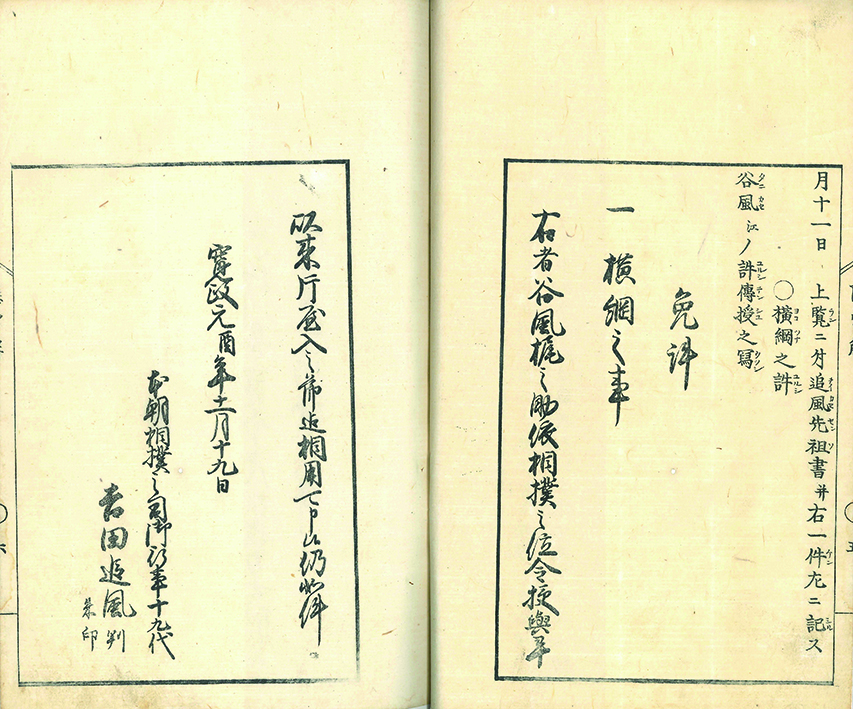 月十一日　上覧ニ付追風先祖書并右一件左ニ記ス
〇横綱之許
谷風江ノ許傳授之寫
免許
一　横綱之事
右者谷風梶之助依相撲之位令授與畢
以来片屋入之節迄相用可申候仍如件
寛政元酉年十一月十九日
本朝相撲之司御行事十九代
吉田追風判
朱印